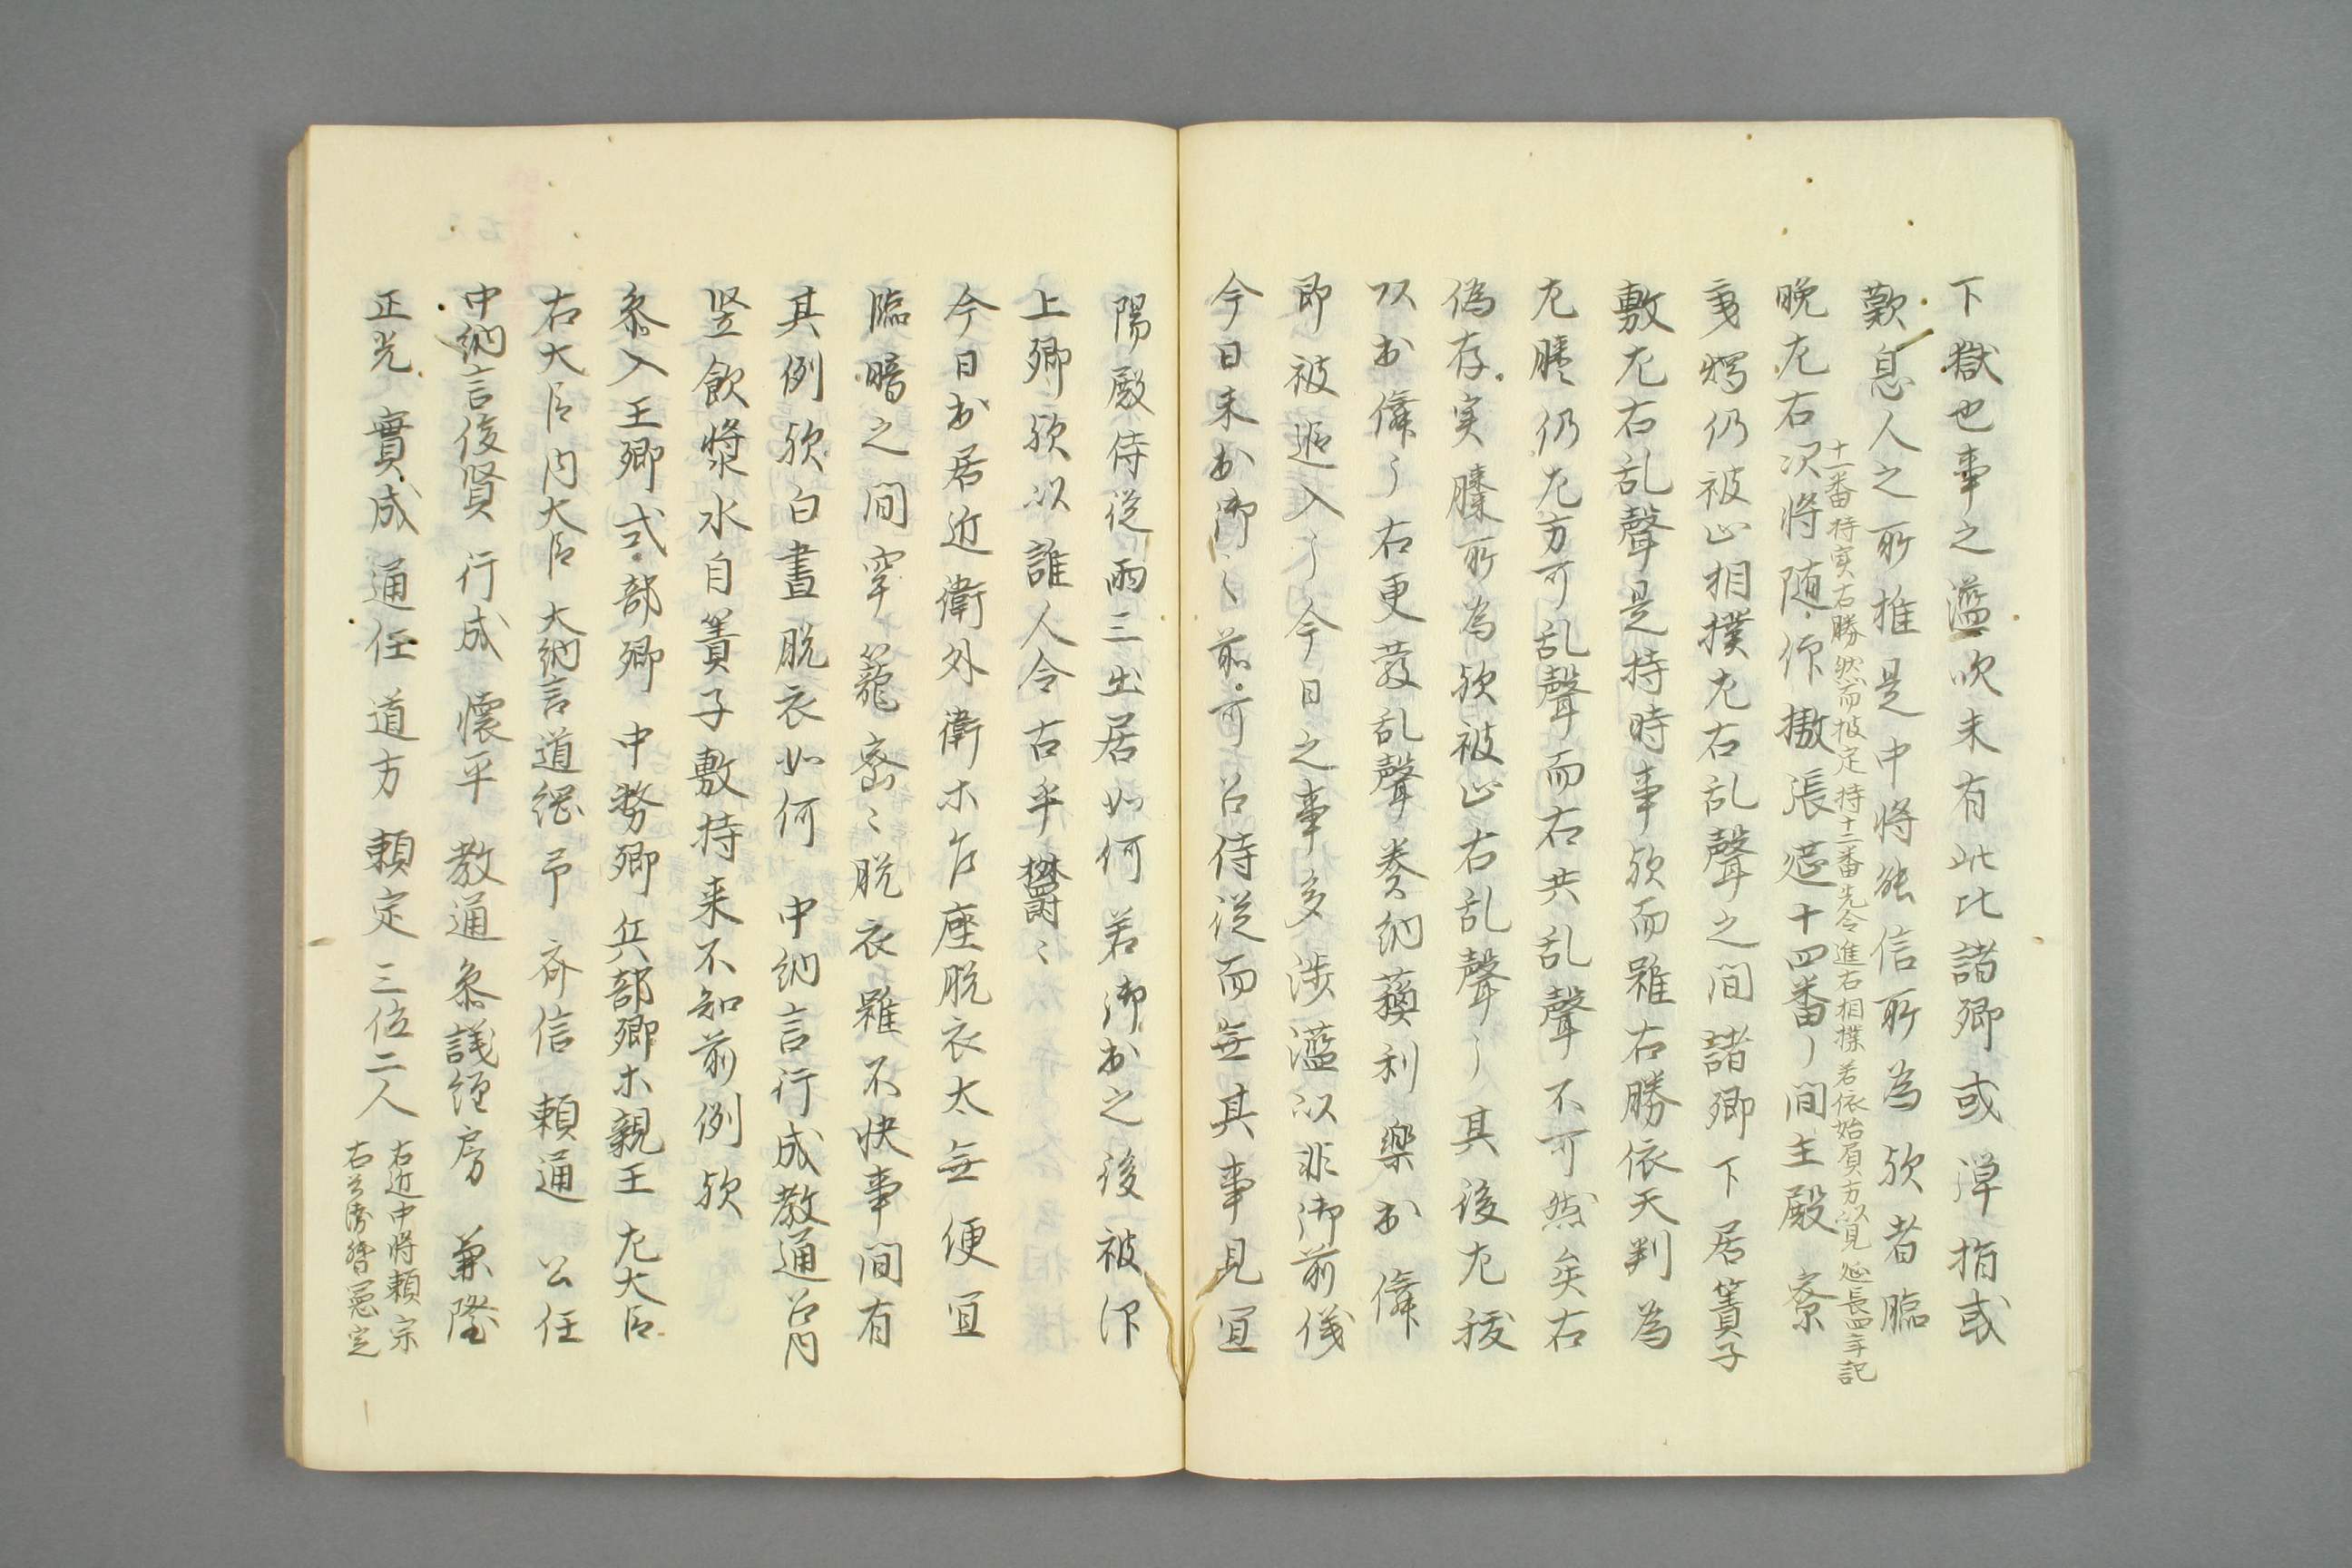 下獄也事之濫吹未有此比諸卿或弾指或
歎息人之所推是中将能信所為欤者臨
十一番持実右勝然而被定持十二番先令進右相撲若依始屓方以見延長四年記
晩左右次将随作撤張莚十四番〻間主殿寮
仍被止相撲左右乱聲之間諸卿下居簀子
敷左右乱聲是持時事欤而雖右勝依天判為
左勝仍左方可乱聲而右共乱聲不可然矣右
偽存実勝所為欤被止右乱聲〻其後左抜
以出儛〻右更發乱聲奏納蘓利樂出儛
即被返入〻今日之事多渉濫以非御前儀
今日未出御〻前可召侍従而無其事見宜
陽殿侍従両三出居如何若御出之後被仰
上卿欤以誰人令召乎欝〻
今日出居近衛外衛ホ乍座脱衣太無便宜
臨暗之間穿籠密〻脱衣雖不快事間有
其例欤白晝脱衣如何中納言行成教通召内
竪飲漿水自簀子敷持来不知前例欤
参入王卿式部卿中務卿兵部卿ホ親王左大臣
右大臣内大臣大納言道綱予斉信頼通公任
中納言俊賢行成懐平教通参議経房兼隆
正光實成通任道方頼定三位二人
右近中将頼宗